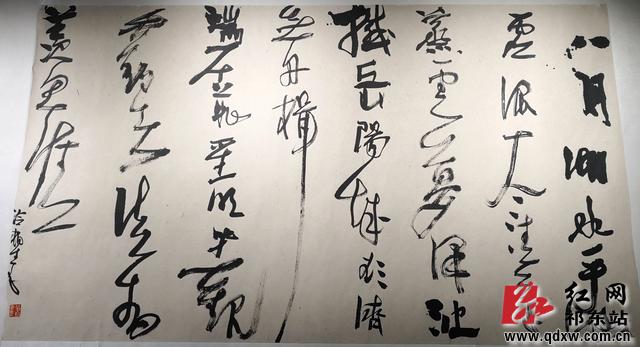 八月湖水平涵
虚混太清气
蒸云梦泽波
撼岳阳城欲济
无舟楫
端居耻圣明坐观
垂钓者徒有
羡鱼情
红网
祁东站
www.qdxw.com.cn